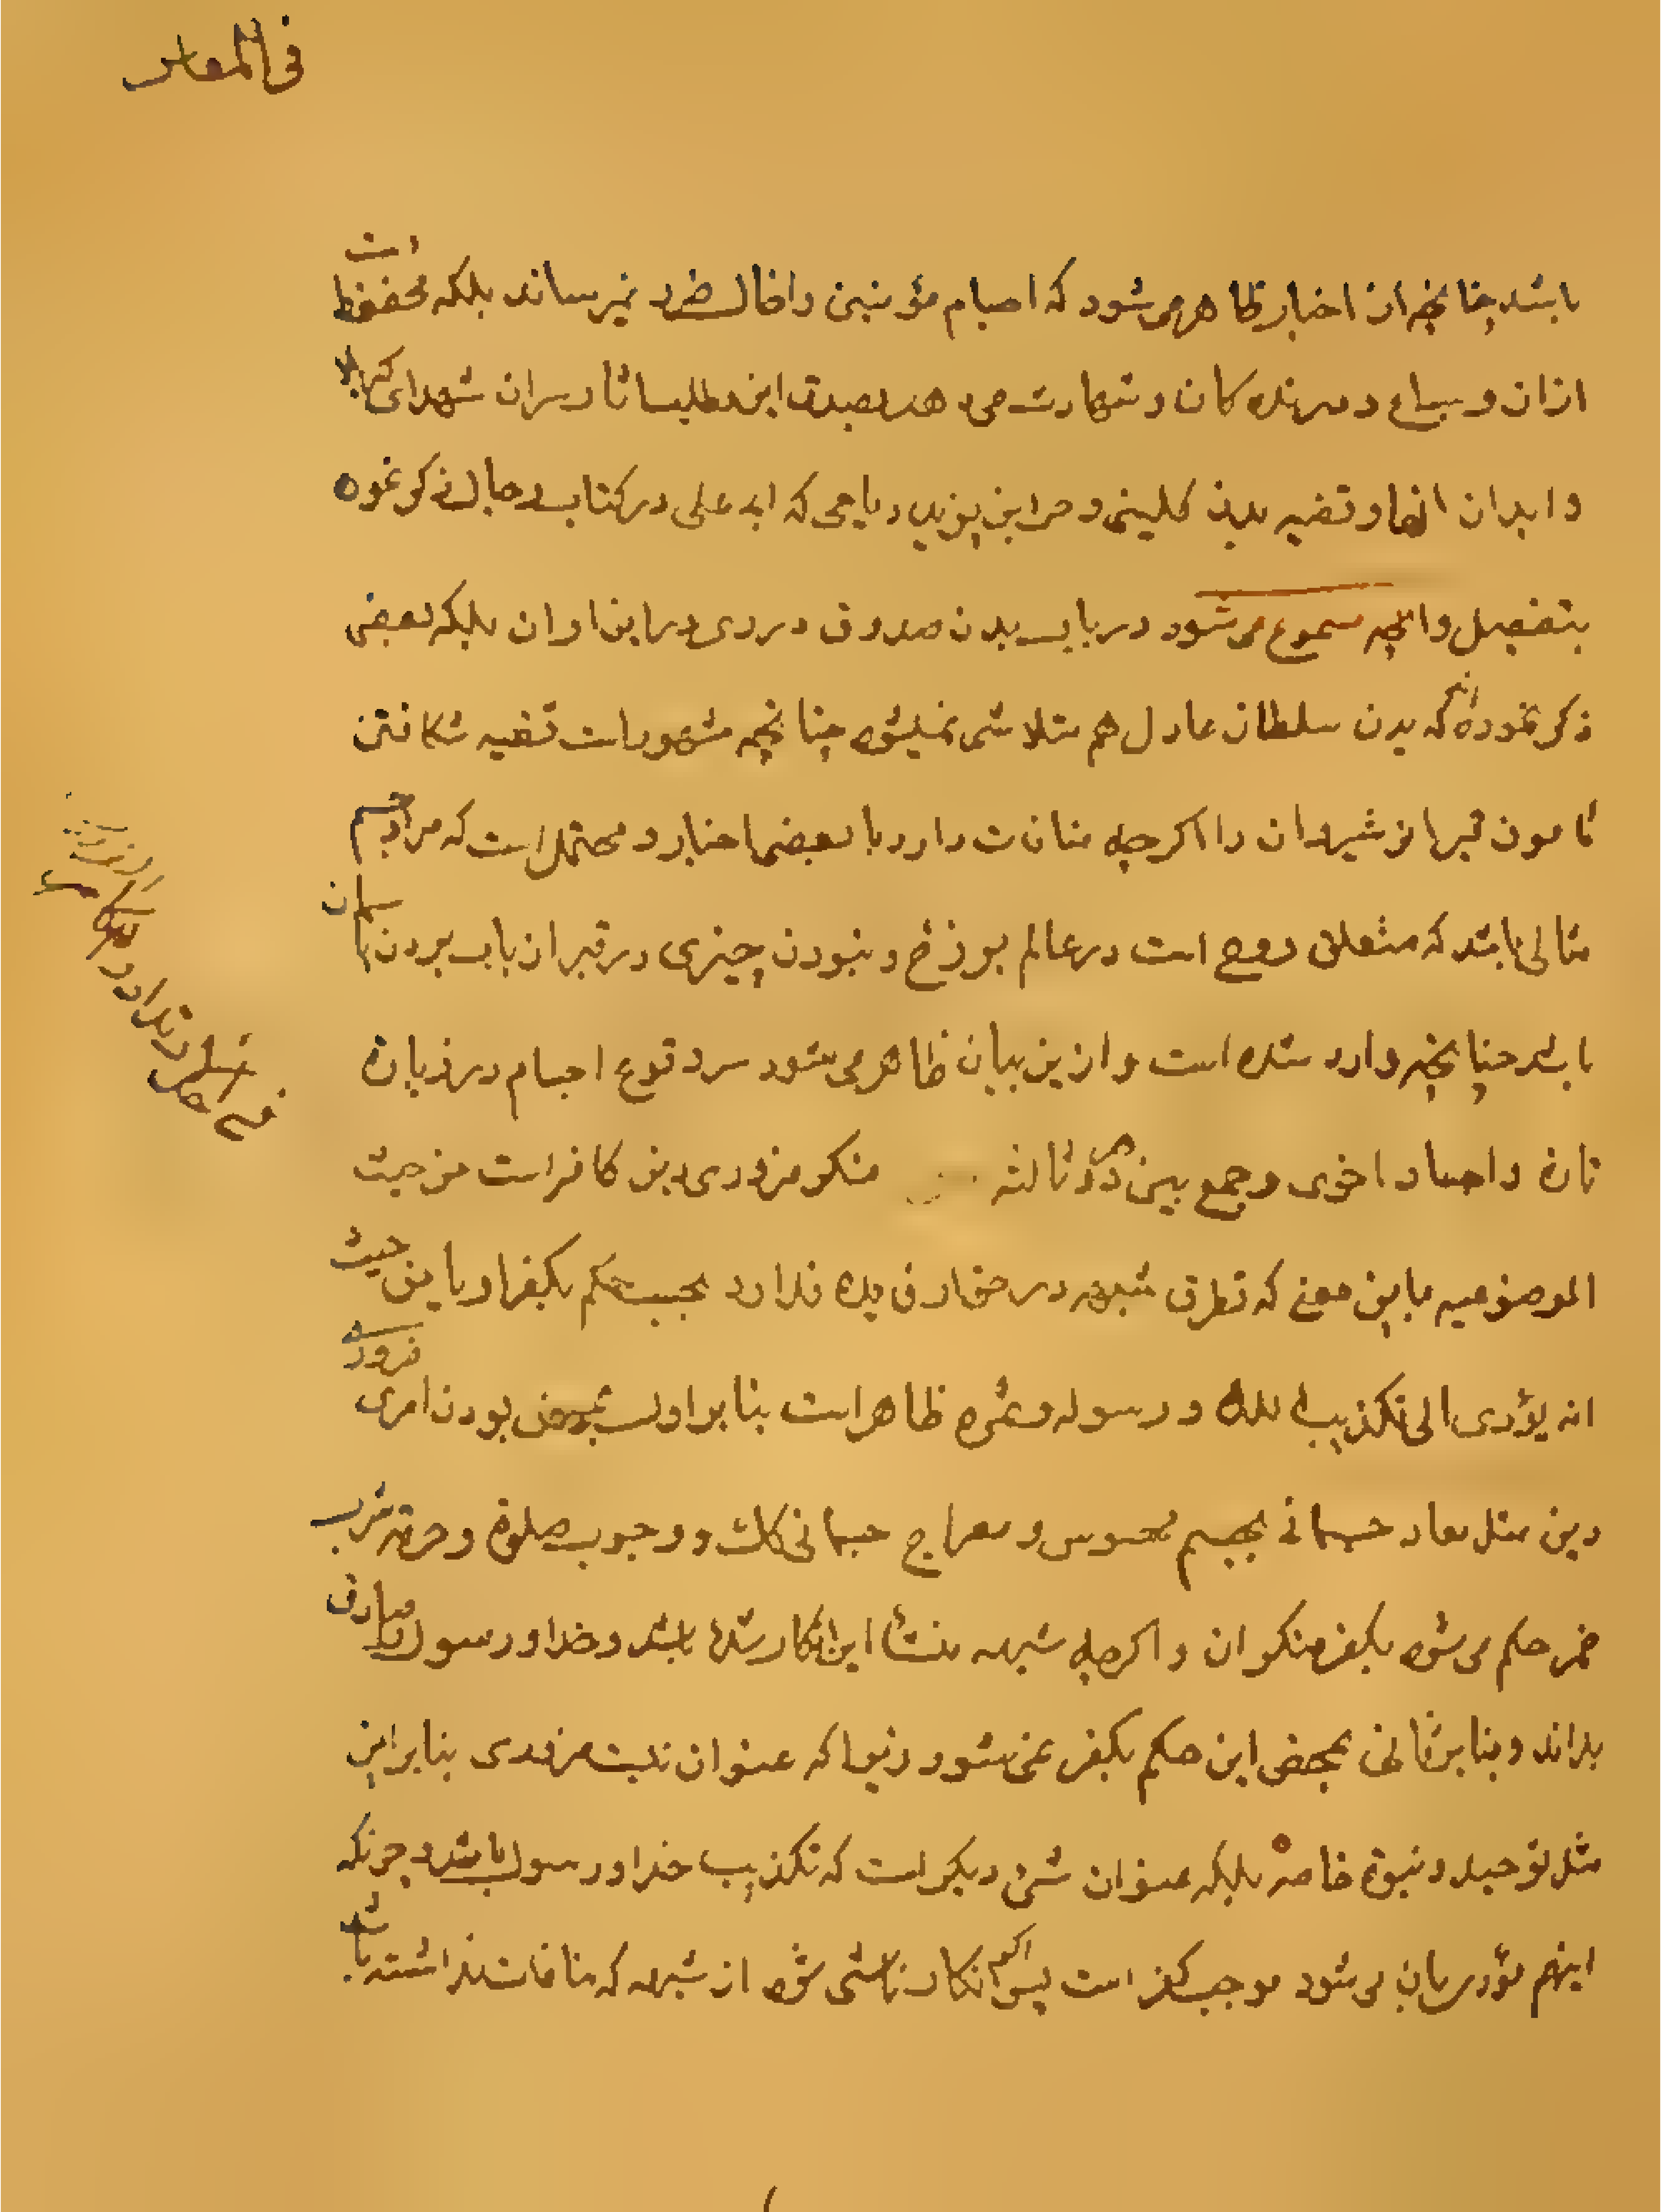 فی المعاد
باشد چنانچه از اخبار ظاهر می شود که اجسام مؤمنین را خاک ضرر نمیرساند بلکه محفوظ است
ازان و سباع و درنده کان و شهادت می دهد بصدق این مطلب اثار سران شهدای کربلا
و ابدان انها و قضیه بدن کلینی و حر ابن یزید ریاحی که ابو علی در کتاب رجال ذکر نموده
بتفصیل و انچه مسموع می شود در باب بدن صدوق در ری در این اوان بلکه بعضی
ذکر نموده اند که بدن سلطان عادل هم متلاشی نمیشود چنانچه مشهور است قضیه شکافتن
مامون قبر انوشیروان را اکرچه منافات دارد با بعضی اخبار و محتمل است که مراد جسم
مثالی باشد که متعلق روح است در عالم برزخ و نبودن چیزی در قبر از باب بردن باسمان
باشد چنانچه وارد شده است و از این بیان ظاهر می شود سر وقوع اجسام در زیارة
تارة و اجساد اخری و جمع بین در ثالثه منکر ضروری دین کافر است من حیث
الموضوعیه باین معنی که تطرق شبهه در حق او فایده ندارد بحسب حکم بکفر او یا من حیث
انه یؤدی الی تکذیب الله و رسوله و ثمره ظاهر است بنا بر اول بمحض بودن امری ضروری
دین مثل معاد جسمانی بجسم محسوس و معراج جسمانی کک و وجوب صلوة و حرمة شرب
خمر حکم می شود بکفر منکر ان و اکرچه شبهه منشأ این انکار شده باشد و خدا و رسول را صادق
بداند و بنا بر ثانی بمحض این حکم بکفر نمی شود زیرا که عنوان نیست ضروری بنا بر این
مثل توحید و نبوة خاصه بلکه عنوان شیء دیکر است که تکذیب خدا و رسول باشد و چونکه
اینهم مؤدی بان می شود موجب کفر است پس اکر انکار ناشی شود از شبهه که منافات نداشته باشد
فی حکم